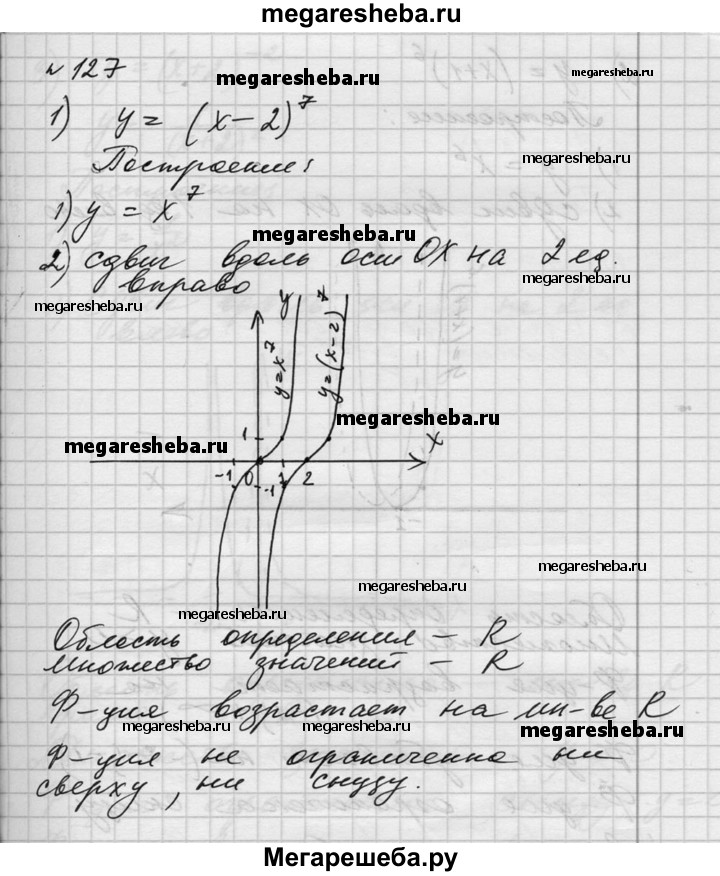 megaresheba.ru
№ 127
megaresheba.ru
1) y = (x-2)^7
Построение:
megaresheba.ru
1) y = x^7
megaresheba.ru
2) сдвиг вдоль оси OX на 2 ед.
вправо
megaresheba.ru
megaresheba.ru
y
y=x^7
y=(x-2)^7
megaresheba.ru
1
x
megaresheba.ru
-1 0 1 2
-1
megaresheba.ru
megaresheba.ru
megaresheba.ru
Область определения – R
множество значений – R
Ф-ция возрастает на мн-ве R
megaresheba.ru megaresheba.ru megaresheba.ru
Ф-ция не ограниченна ни
сверху, ни снизу.
Мегарешеба.ру